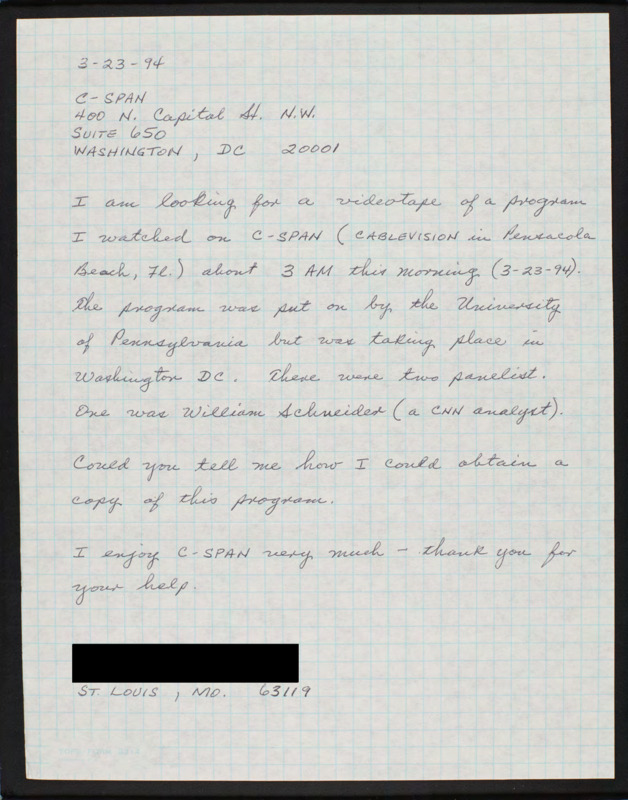 3-23-94
C-SPAN
400 N. Capital St. N.W.
SUITE 650
WASHINGTON, DC 20001
I am looking for a videotape of a program
I watched on C-SPAN (CABLEVISION in Pensacola
Beach, Fl.) about 3 AM this morning (3-23-94).
The program was put on by the University
of Pennsylvania but was taking place in
Washington DC. There were two panelist.
One was William Schneider (a CNN analyst).
Could you tell me how I could obtain a
copy of this program.
I enjoy C-SPAN very much - thank you for
your help.
ST. LOUIS, MO. 63119